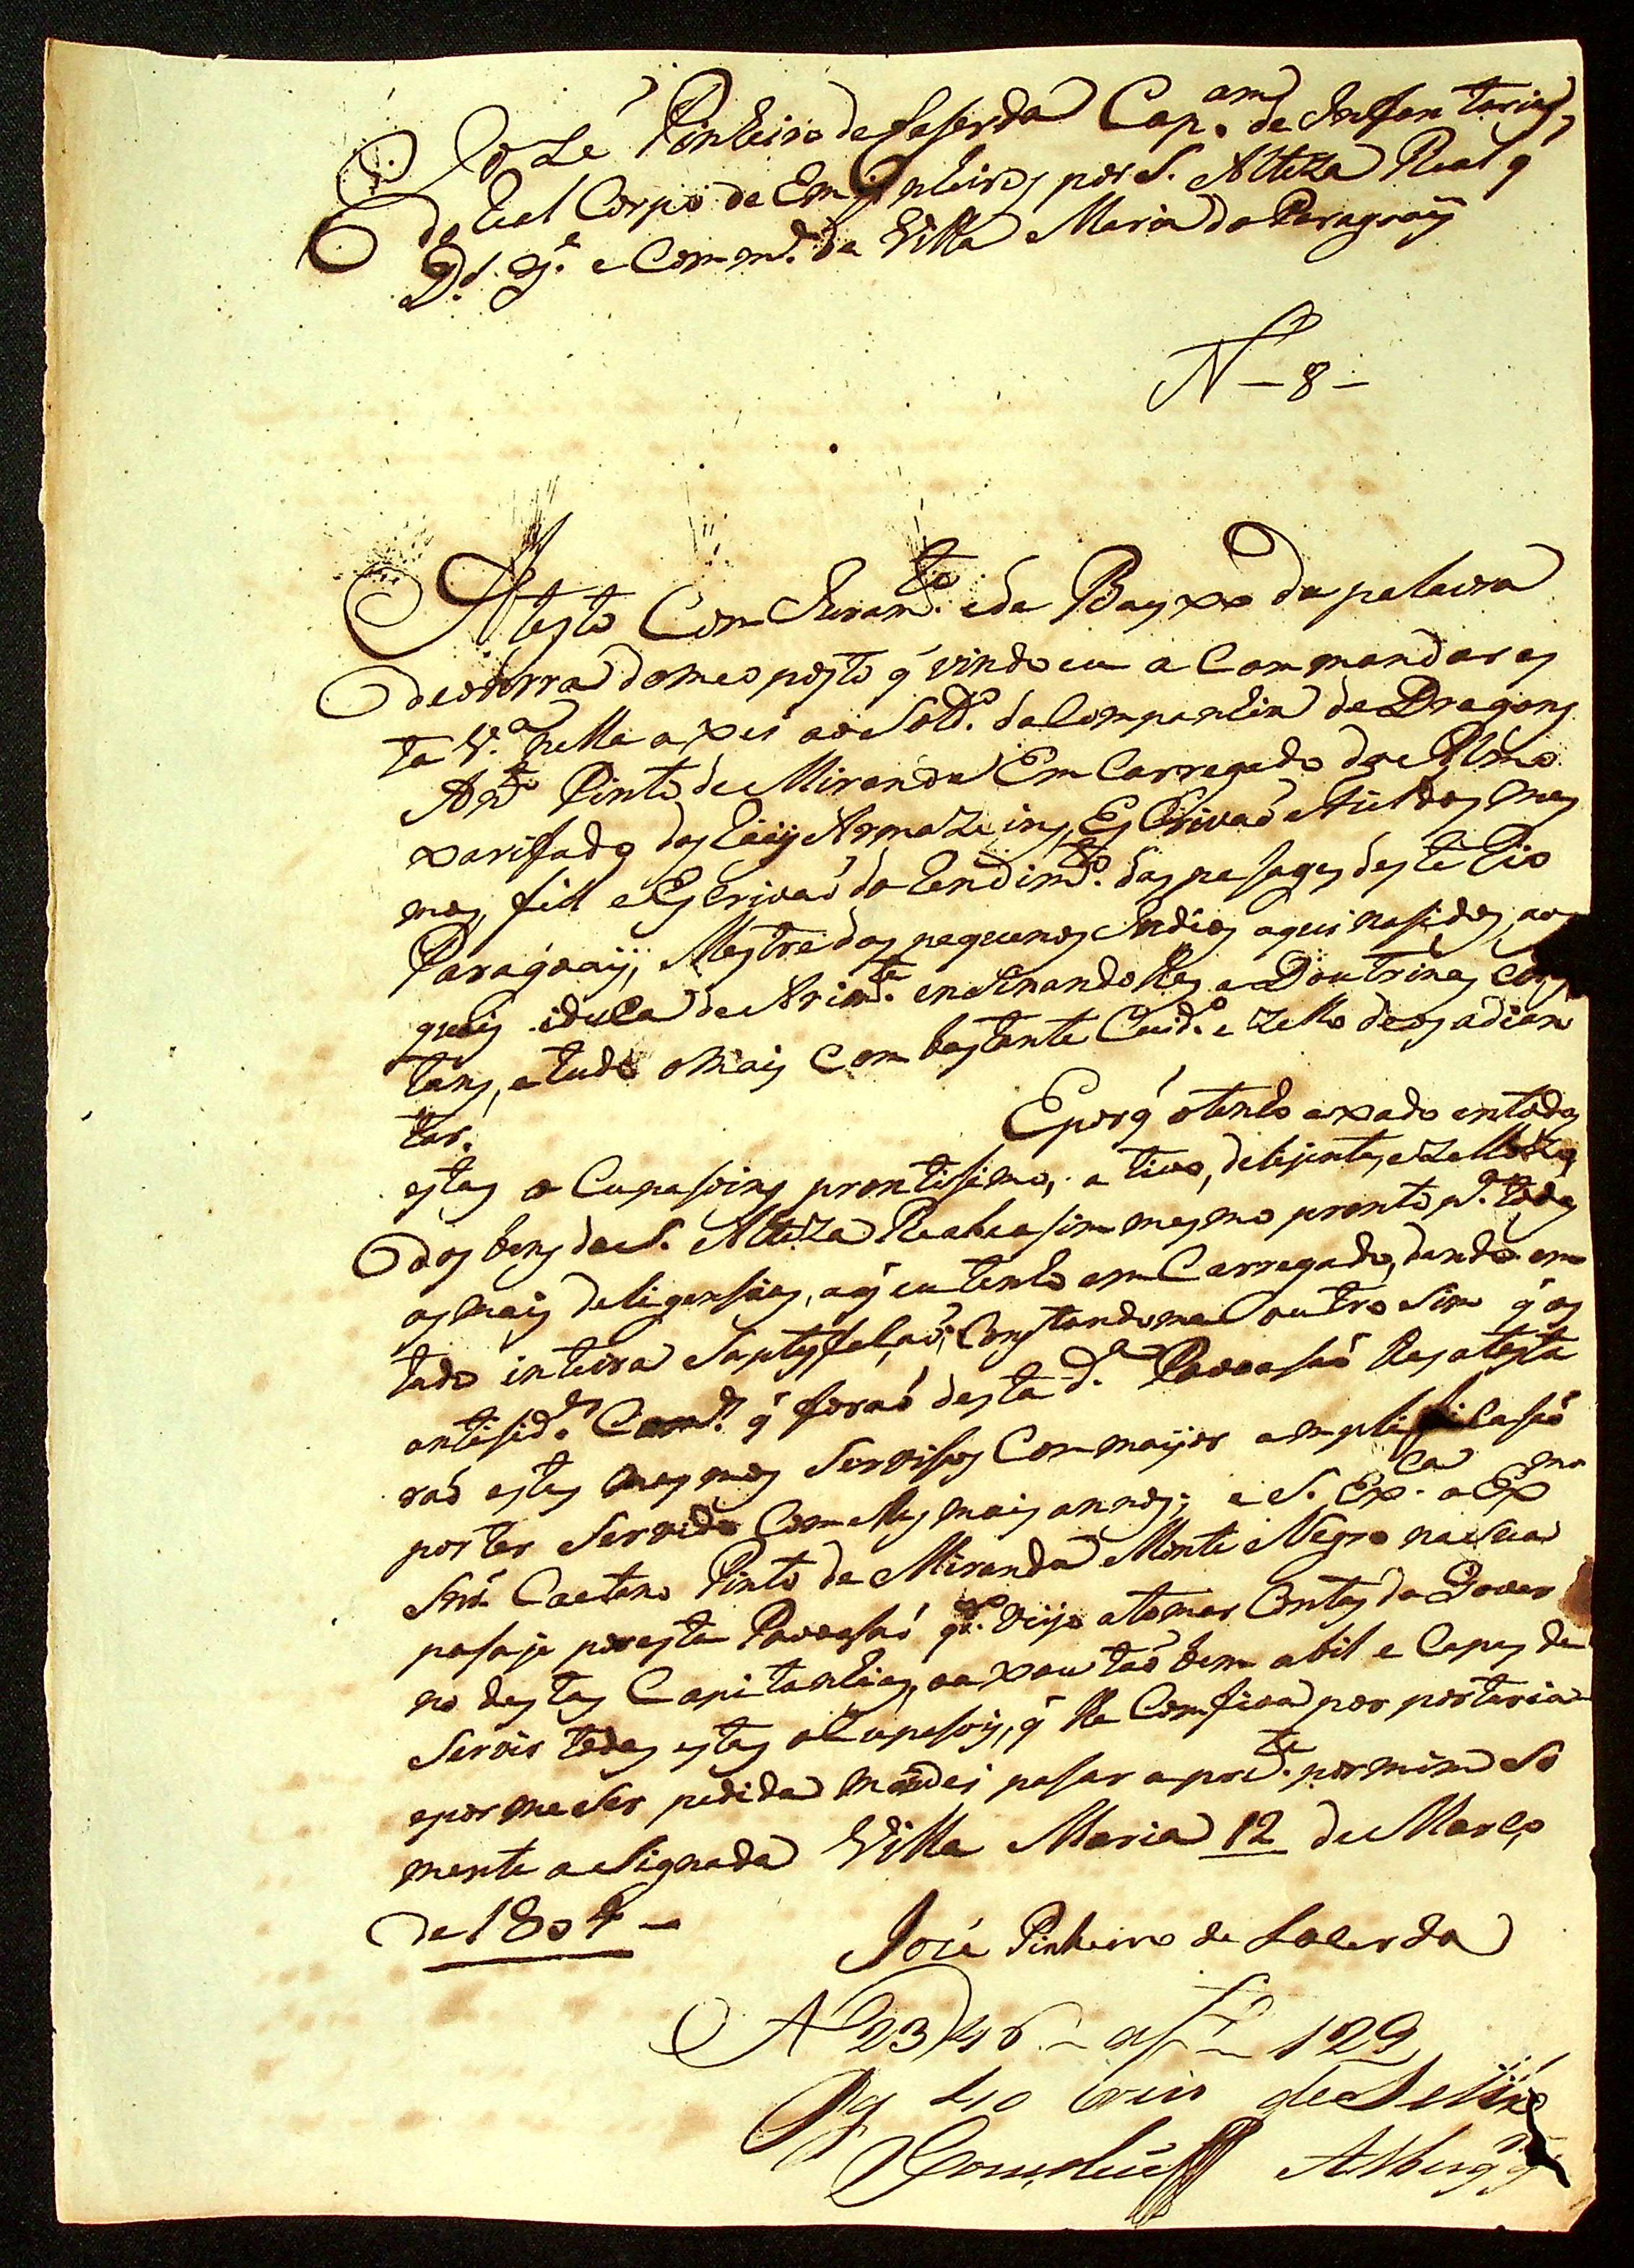 Joze Pinheiro de Laserda Cap.am de Infantaria,
do Real Corpo de Eminheiros por S. Alteza Real q̃
D.s g.e e Comm.e da Villa Maria do Paraguaÿ
N - 8 -
Atesto Com Juram.to e da Bayxo da palavra
de onrra do meo posto q̃ vindo eu a Commandar es
ta V.a nella axei ao Sold.o da Companhia de Dragons
Ant.o Pinto de Miranda Em Carregado do Almo
xarifado dos Armazeins, Escrivaõ
mos, fiel e Escrivaõ do Rendim.to das pasages deste Rio
Paraguaÿ, Mestre dos pequenos Indios aqui nasidos, aos
quais iduca ensinandolhes a Doutrina
tans, e tudo o mais Com bastante Cuid.o e zello de os adian
tar.
E por q̃ o tenho axado em todas
estas o Cupasoins prontisimo, ativo, delijente, e zellozo
dos bens de S. Alteza Real e asim mesmo pronto p.a todas
as mais deligensias, a q̃ eu tenho em Carregado, dando em
tudo inteira Saptisfasaõ, Constandome outro Sim q̃ os
antisid.es Com.des q̃ foraõ desta d.a Povoasaõ lhes atesta
raõ estes mesmos Servisos Com maijor amplificasaõ
por ter Servido Com elles mais annos; e S. Ex.ca o Ex.mo
Snr̃. Caetano Pinto de Miranda Monte Negro na sua
pasaje por esta Povoasaõ q.do veijo a tomar Contas do Gover
no destas Capitanhias, o axou taõ bem abil e Capas de
Servir todas estas oCupasois, q̃ lhe Comfiou por portaria
e por me Ser pedida mandei pasar a prez.te por mim So
mente asignada Villa Maria 12 de Março
de 1804 -
José Pinheiro de Lacerda
N 2346 - a f 129
Pg 40 reis de Sello